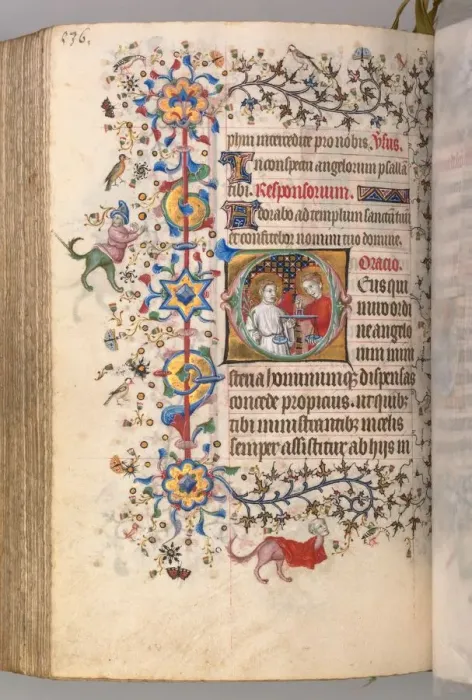 236.
phin intercedite pro nobis. Vsus.
In conspectu angelorum psallā
tibi. Responsorium.
Adorabo ad templum sanctū tuū
et confitebor nomini tuo domine.
Oracio.
Deus qui
miro ordi
ne angelo
rum mini
steria hominumq̄ dispensas
concede propicius. ut quibz
tibi ministrantibz in celis
semper assistitur ab hijs in